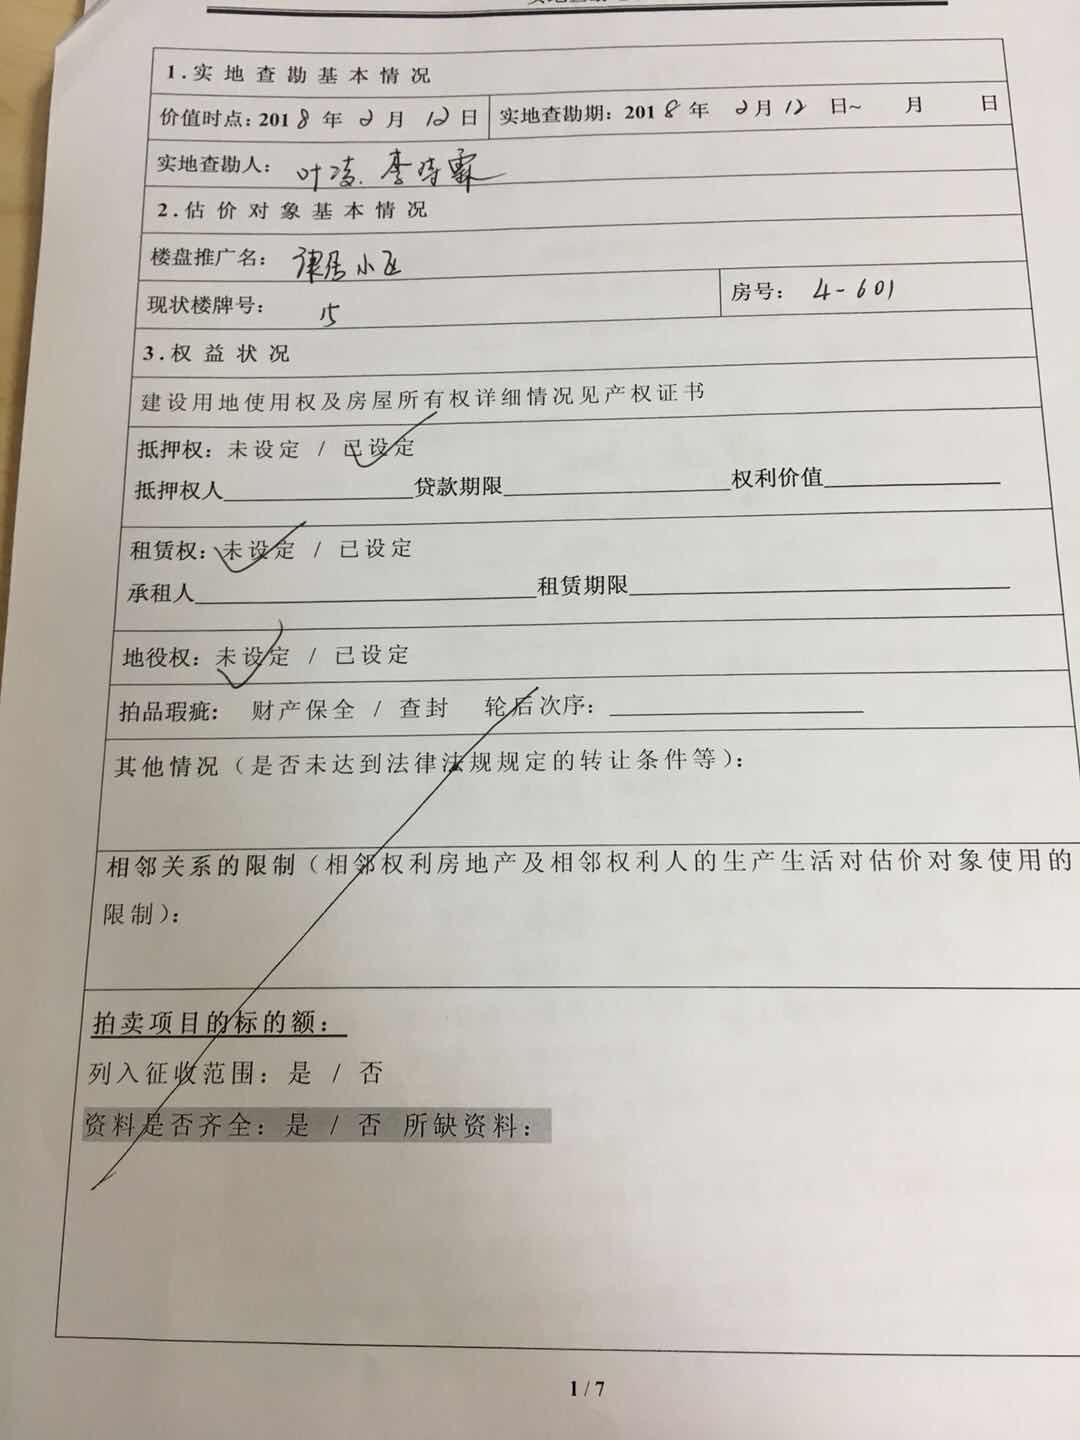 1.实地查勘基本情况
价值时点：2018年2月12日 实地查勘期：2018年2月12日~ 月 日
实地查勘人：叶凌、李
2.估价对象基本情况
楼盘推广名：建居小区
现状楼牌号：15 房号：4-601
3.权益状况
建设用地使用权及房屋所有权详细情况见产权证书
抵押权：未设定 / 已设定
抵押权人 贷款期限 权利价值
租赁权：未设定 / 已设定
承租人 租赁期限
地役权：未设定 / 已设定
拍品瑕疵： 财产保全 / 查封 轮后次序：
其他情况（是否未达到法律法规规定的转让条件等）：
相邻关系的限制（相邻权利房地产及相邻权利人的生产生活对估价对象使用的
限制）：
拍卖项目的标的额：
列入征收范围：是 / 否
资料是否齐全：是 / 否 所缺资料：
1 / 7